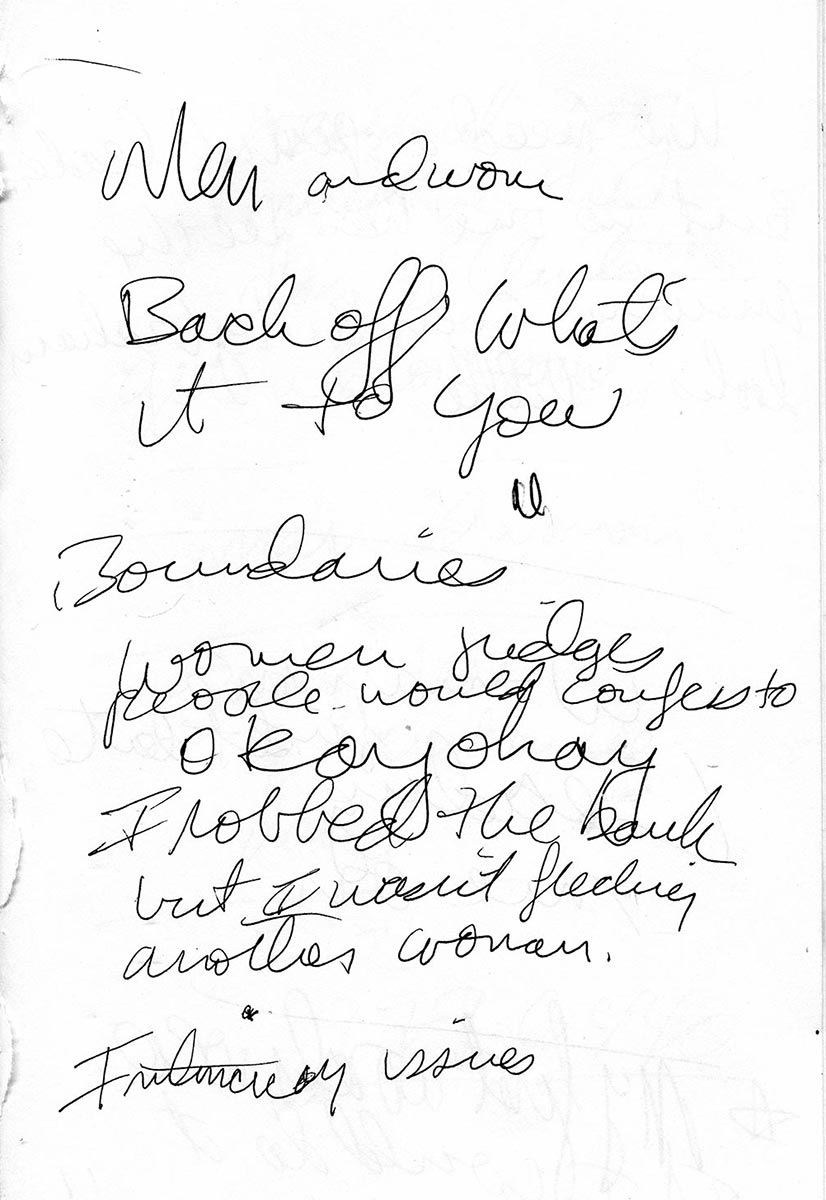 Men and wome
Back off What's
it to you
Boundaries
women judges
people would confess to
okay okay
I robbed the bank
but I wasn't
another woman.
Intimacy issues